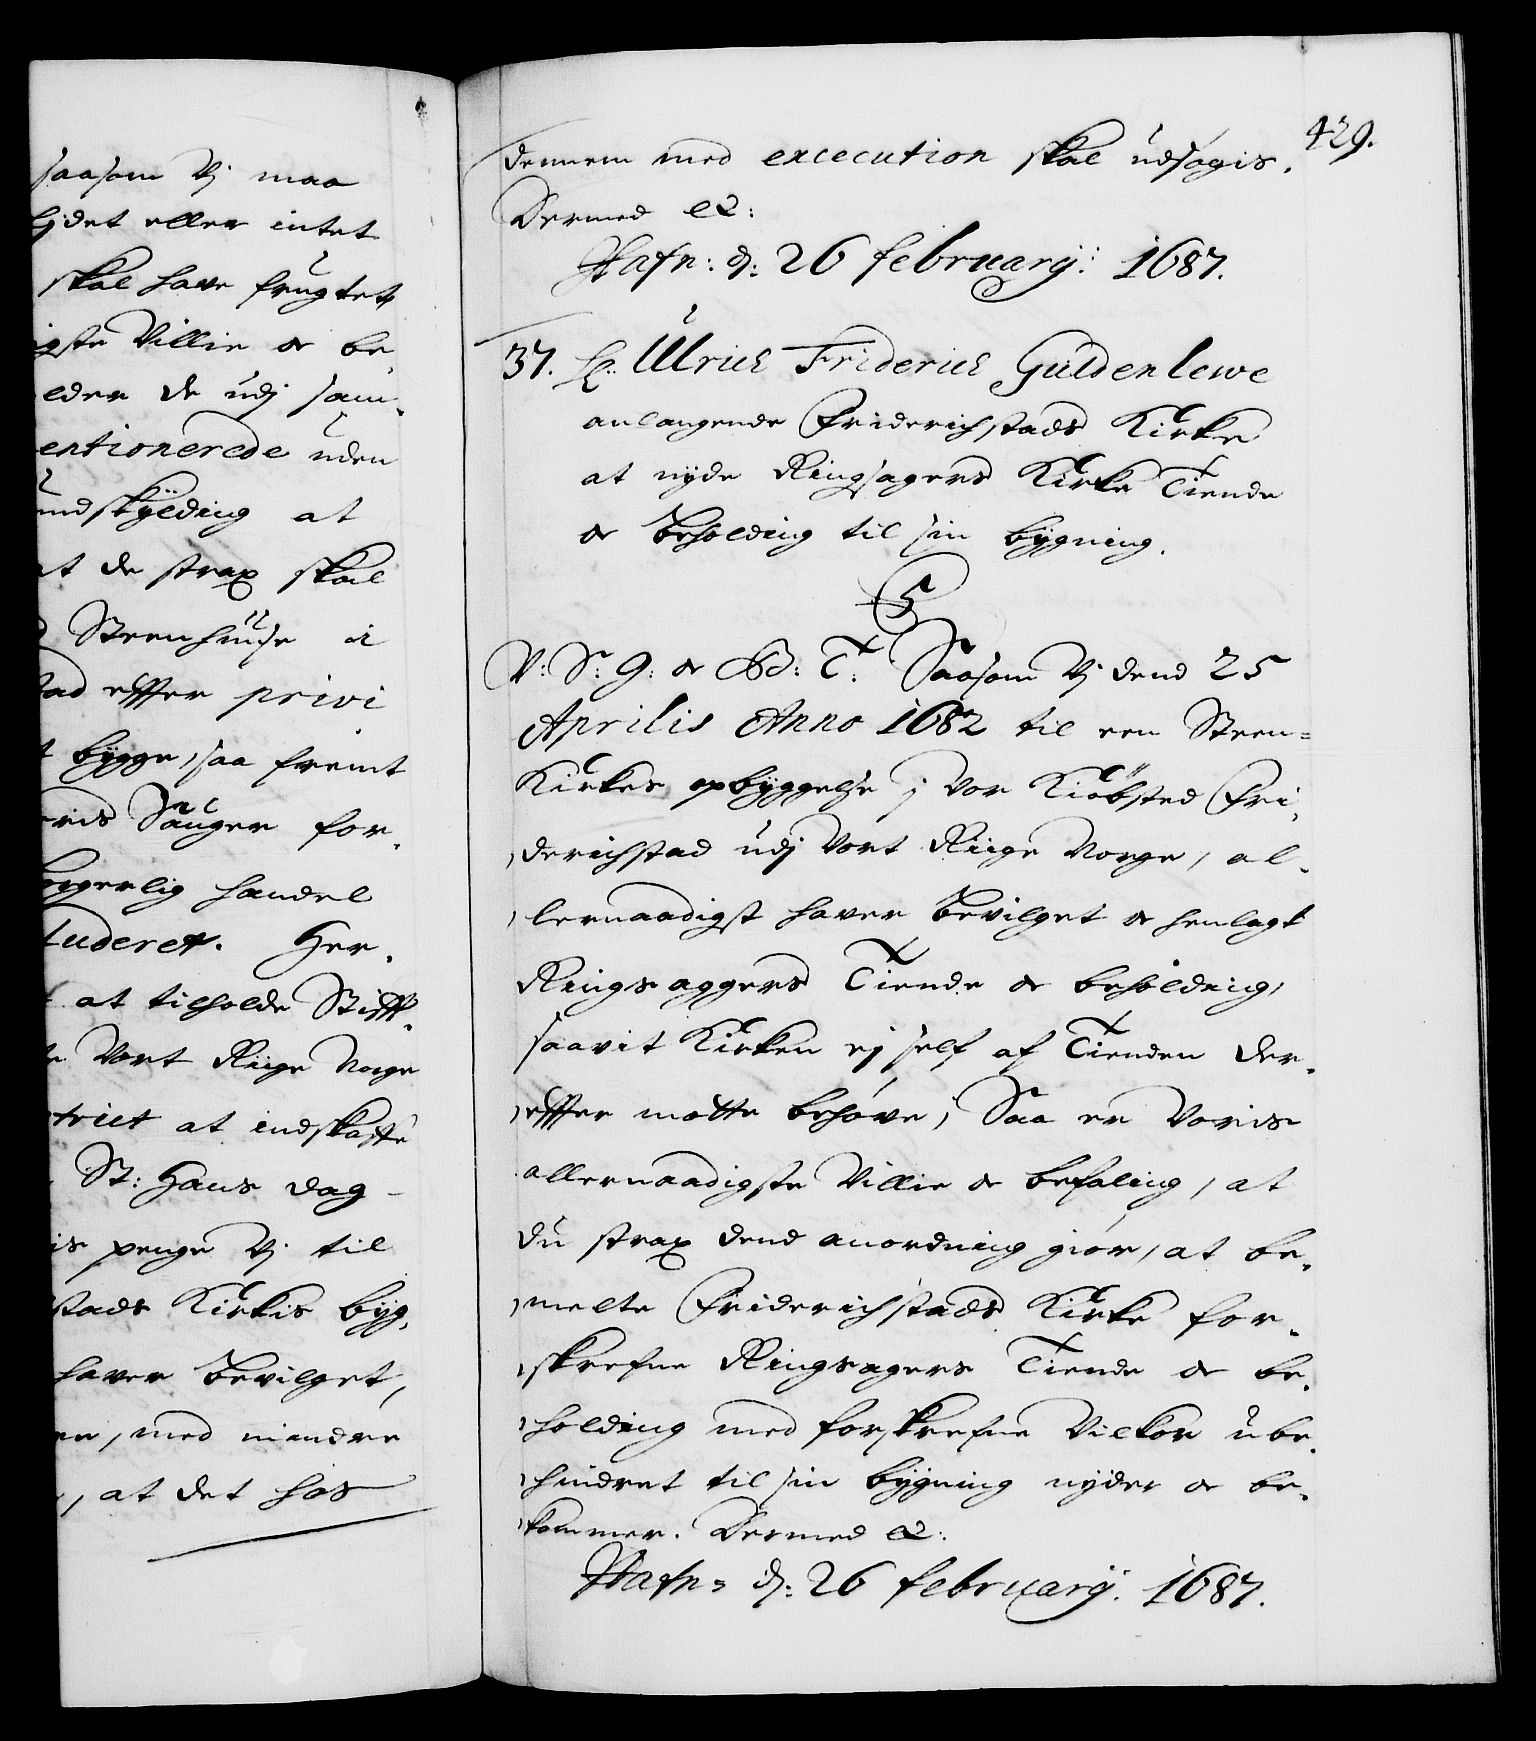 saasom Vj maa
lydet eller intet
skal have frugtet
igste Villie og be¬
elder de udj sam¬
entionerede uden
undskÿlding at
at de strax skal
Steenhuuse i
stad effter privi
bÿgge, saa fremt
Sauger for¬
borgerlig handel
luderet. Her¬
at tilholde Stifft¬
Vort Riige Norge
trict at indskaffe
St: Hans dag
penge Vj til
stads Kirkis bÿg¬
haver bevilget,
med mindre
, at det hos
429.
dennem med excecution skal udsøgis.
Dermed &:
Hafn: d: 26 februarÿ: 1687.
37. H: Ulrich Friderich Guldenlewe
anlangende Friderichstads Kirke
at nÿde Ringsagers Kirke Tiende
og beholding til sin bÿgning.
C5
V: S: G: og B: T: Saasom Vj dend 25
Aprilis Anno 1682 til een Steen=
Kirkes opbÿggelse j Vor Kiøbsted Fri¬
derichstad udj Vort Riige Norge, al¬
lernaadigst haver bevilget og henlagt
Ringsaggers Tiende og beholding,
saavit Kirken ej self af Tienden der¬
effter motte behøve, Saa er Voris
allernaadigste Villie og befaling, at
du strax dend anordning giør, at be¬
melte Friderichstads Kirke for¬
skrefne Ringsagers Tiende og be¬
holding med forskrefne Vilkor ube¬
hindret til sin bÿgning nÿder og be¬
kommer. Dermed &:
Hafn: d: 26 februarÿ: 1687.